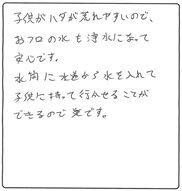 子供がハダが荒れやすいので、
おフロの水も浄水になって
安心です。
水筒に水道から水を入れて
子供に持って行かせることが
できるので楽です。